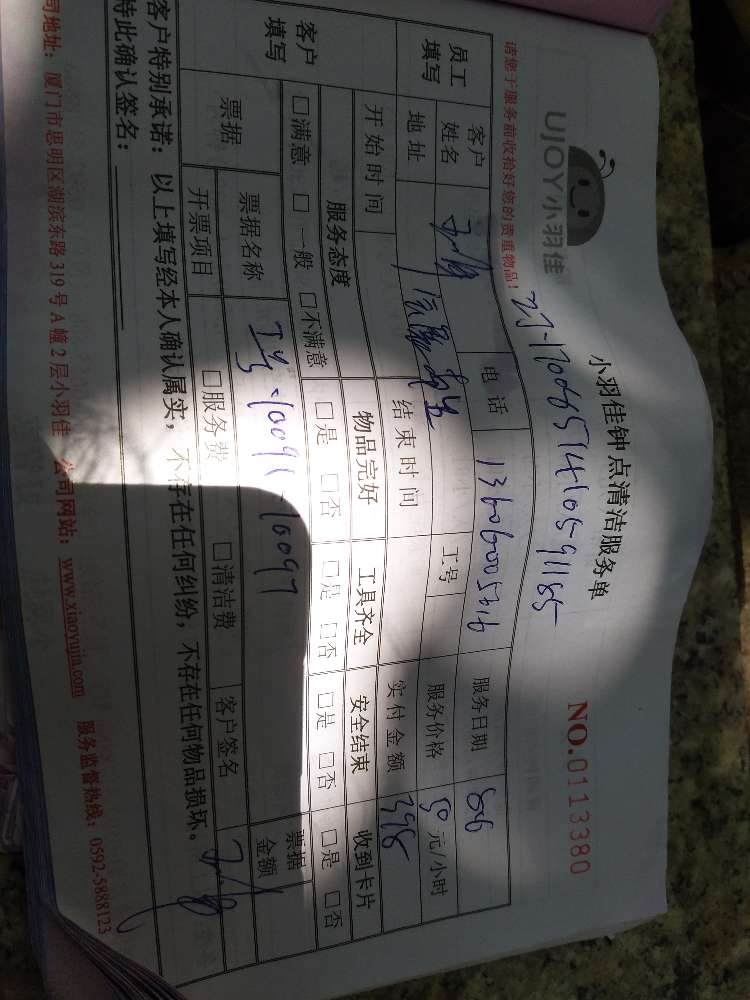 UJOY小羽佳
小羽佳钟点清洁服务单
NO.0113380
请您于服务前收拾好您的贵重物品！
员工填写
客户姓名
电话
13606005616
服务日期
8.6
地址
工号
服务价格
50 元/小时
开始时间
结束时间
实付金额
398
客户填写
服务态度
物品完好
工具齐全
安全结束
收到卡片
□满意 □一般 □不满意
□是 □否
□是 □否
□是 □否
□是 □否
票据
票据名称
工号:10091-10097
票据金额
开票项目
□服务费
□清洁费
客户签名
客户特别承诺：以上填写经本人确认属实，不存在任何纠纷，不存在任何物品损坏。
特此确认签名：
司地址：厦门市思明区湖滨东路319号A幢2层小羽佳 公司网站：www.xiaoyujia.com 服务监督热线：0592-5888123